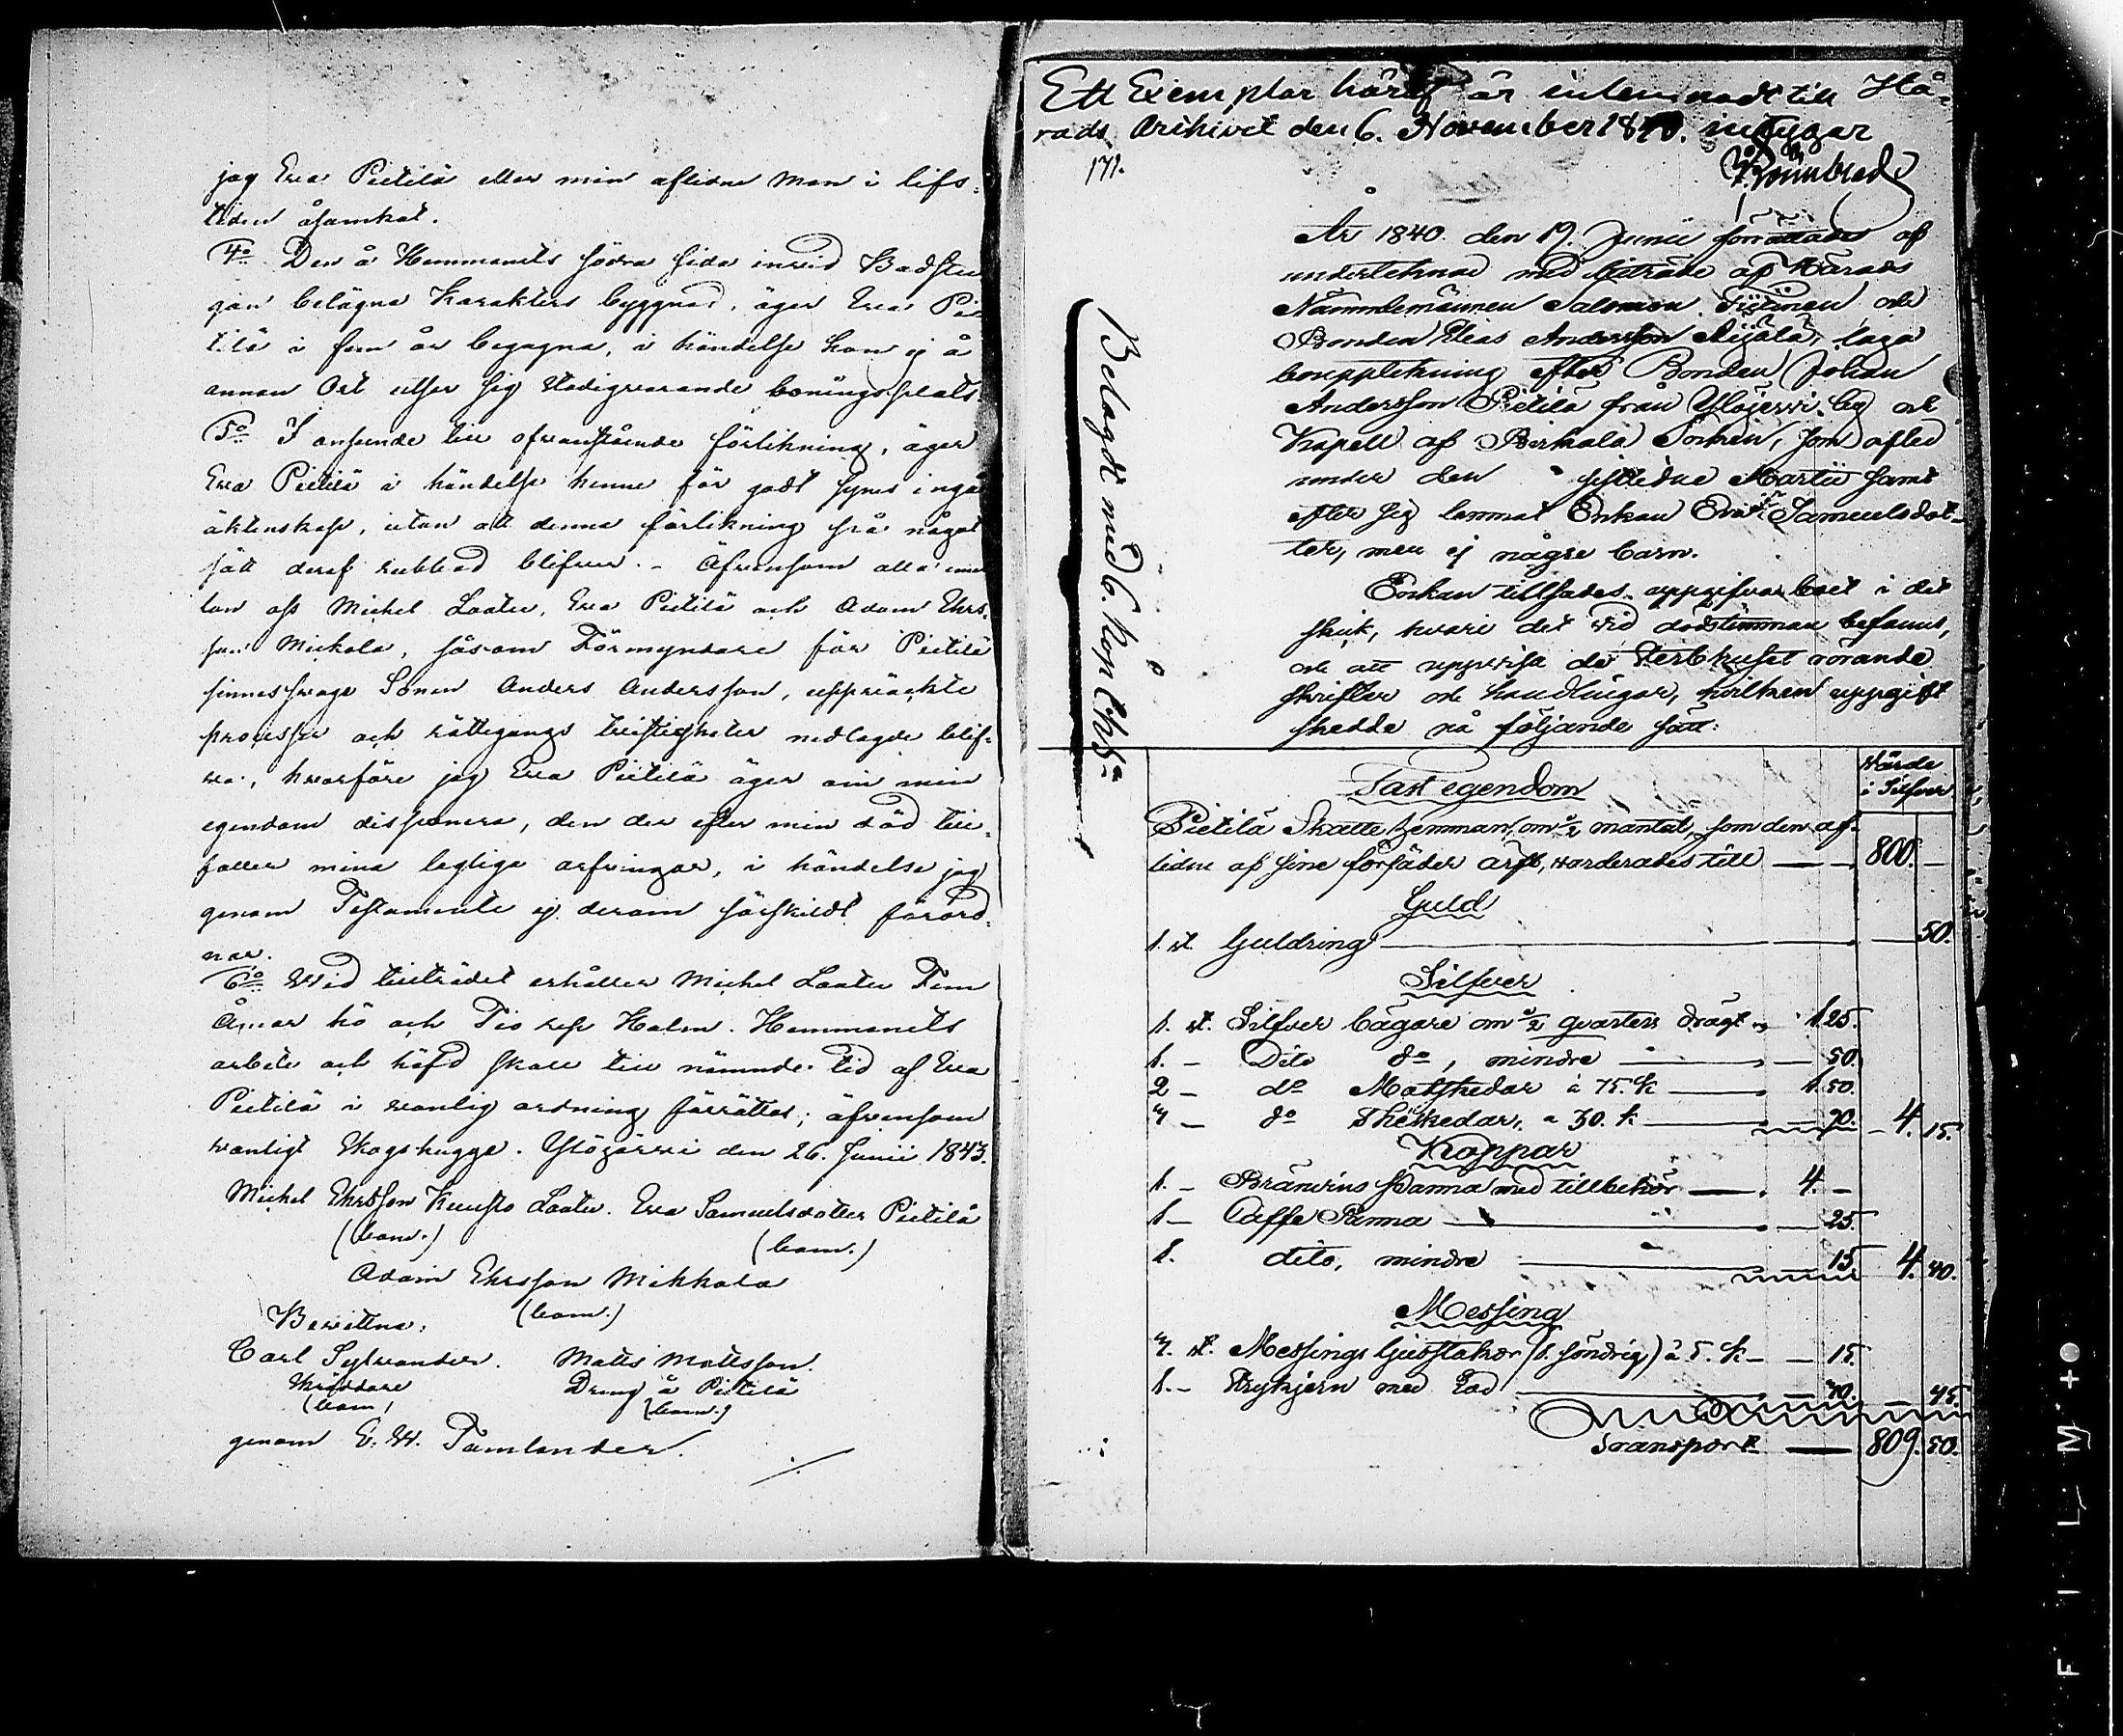 jag Eva Pietilä eller min aflidne man i lifs-
tiden åsamkat.
4o Den å Hemmanets södra sida invid Badstu
gan belägna Karakters byggnad, äger Eva Pie-
tilä i fem år begagna, i händelse hon ej å
annan Ort utser sig stadigvarande boningsplats.
5o I anseende till ofvanstående förlikning, äger
Eva Pietilä i händelse henne för godt synes ingå
äktenskap, utan att denna förlikning på något
sätt deraf rubbad blifver. – Äfvensom alla emel
lan oss Michel Laatu, Eva Pietilä och Adam Ehrs-
son Mickola, såsom Förmyndare för Pietilä
sinnessvage Sonen Anders Andersson, uppväckte
processer och rättegångs tvistigheter nedlagde blif-
va, hvarföre jag Eva Pietilä äger om min
egendom disponera, den der efter min död till-
faller mina laglige arfvingar, i händelse jag
genom Testamente ej derom särskildt förord-
nar.
6o Wid tillträdet erhåller Michel Laatu Fem
Åmar hö och Tio resp Halm. Hemmanets
arbete och häfd skall till nämnde tid af Eva
Pietilä i vanlig ordning förrättas; äfvensom
vanligt skogshygge. Ylöjärvi den 26. Junii 1843.
Michel Ehrsson Laatu. Eva Samuelsdotter Pietilä
(bom.) (bom.)
Adam Ehrsson Mikkola
(bom.)
Bevittna:
Carl Sylvander. Matts Mattsson.
Skräddare Dreng å Pietilä
(bom.) (bom.)
genom E. W. Tamlander.
Ett Exemplar häraf är inlemnadt till Hä-
rads Arkivet den 6. November intygar
171.
År 1840. den 19. Junii förrättades af
undertecknad med biträde af Härads
Nämndemännen Salomon och
Bonden Elias Andersson Äijälä, laga
bouppteckning efter Bonden Johan
Andersson Pietilä från Ylöjervi by och
Kapell af Birkala Socken, som afled
under den sistledne Martii samt
efter sig lemnat Enkan Eva Samuelsdot-
ter, men ej någre barn.
Enkan tillsades uppgifva boet i det
skick, hvari det vid dödstimman befanns,
och att uppvisa de Sterbhuset rörande
skrifter och handlingar, hvilken uppgift
skedde på följande sätt:
Belagdt med 6. Kop Ch:Sa
Fast egendom Värde i Silfver
Pietilä Skatte hemman, om 1/2 mantal, som den af-
lidne af sine förfäder ärft, värderades till — 800. —
Guld
1. st. Guldring — 50.
Silfver
1. st. Silfver bägare om 1/2 qvarters drägt — 1.25.
1. – Dito do, mindre — 50.
2 – do Matskedar à 75. k — 1.50.
3 – do Theskedar, a 30. k — 90. 4. 15.
Koppar
1. – Bränvins Panna med tillbehör — 4. –
1 – Caffe Panna — 25.
1. dito, mindre — 15 4. 40.
Messing
3. st. Messings ljusstakar (1. söndrig) à 5. k – 15.
1. – Strykjern med Lod — 30. — 45.
Transport — 809. 50.